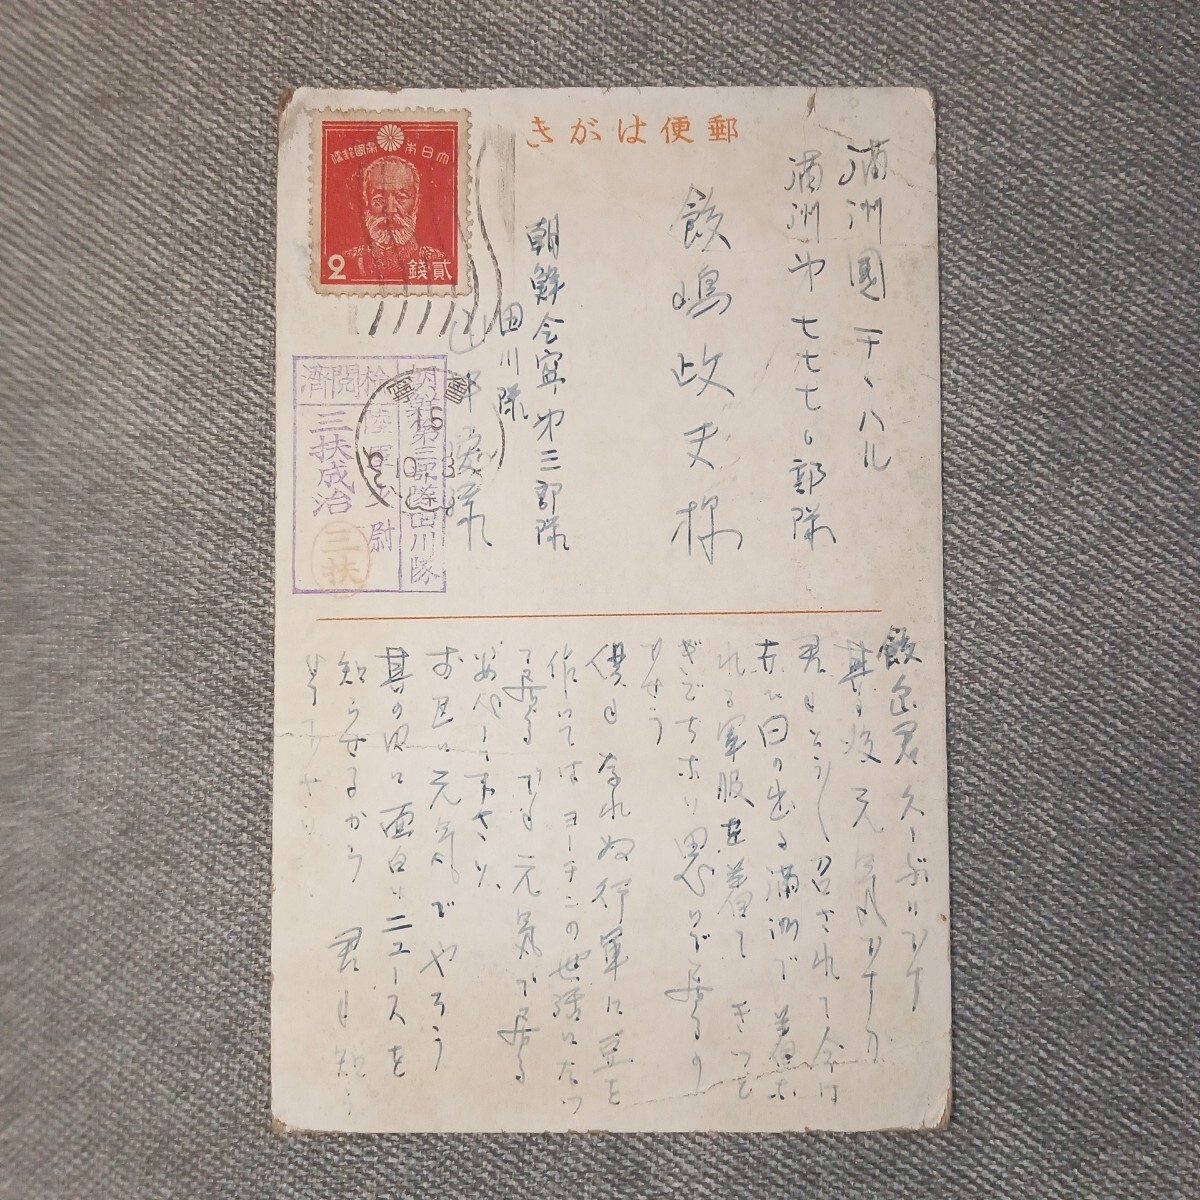 郵便はがき
大日本帝國郵便
2
貳錢
満洲國チヽハル
満洲第七七七〇部隊
飯嶋政夫様
朝鮮会寧第三部隊
田川隊
山中
朝鮮第三部隊田川隊
検閲濟
陸軍少尉
三扶成治
三扶
飯島君久しぶりです
其の後元気ですか
君もとうとう召されて今は
赤い日の出る満洲で着な
れる軍服を着て
思いで居るの
だせう
僕もなれぬ行軍に豆を
作ってはヨーチンの世話になつ
て居るでも元気で居る
安心して下さい
お互に元気でやろう
其の内に面白いニュースを
知らせるから 君も知ら
せて下さい